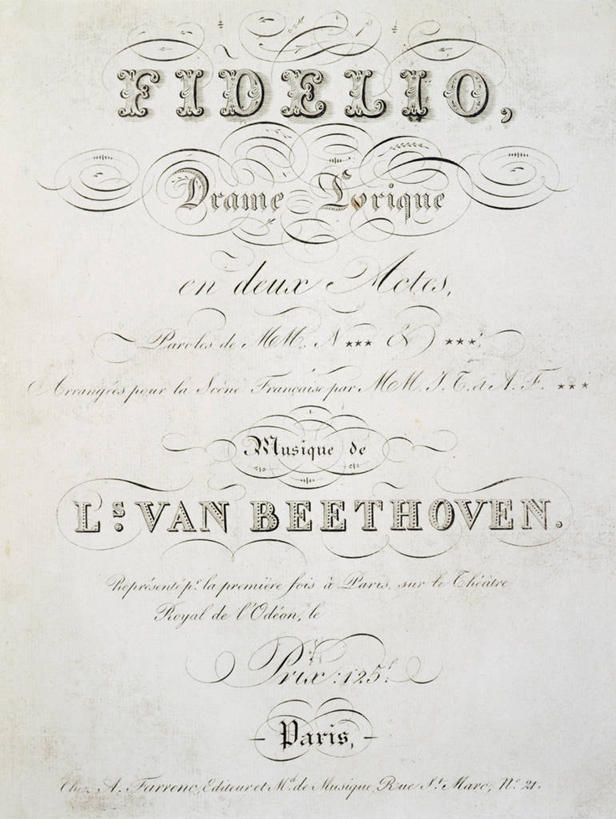 FIDELIO,
Drame Lyrique
en deux Actes,
Paroles de MM. N *** & ***;
Arrangées pour la Scène Française par MM. J. T. et A. F. ***
Musique de
Ls. VAN BEETHOVEN.
Représenté pr. la première fois à Paris, sur le Théâtre
Royal de l'Odéon, le
Prix: 125f.
- Paris, -
Chez A. Farrenc, Editeur et Md. de Musique, Rue St. Marc, No. 21.